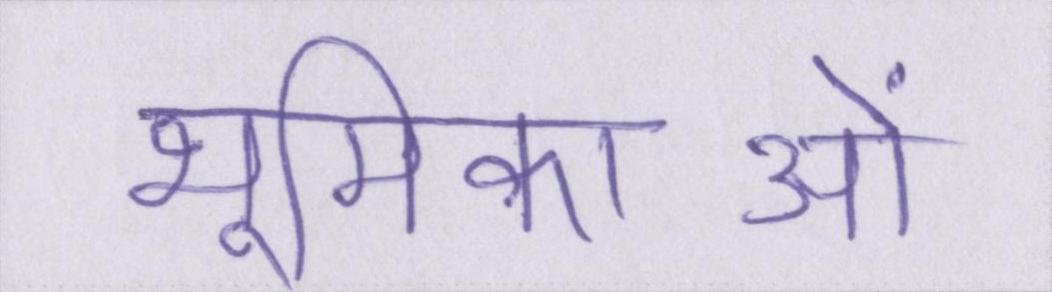 भूमिकाओं